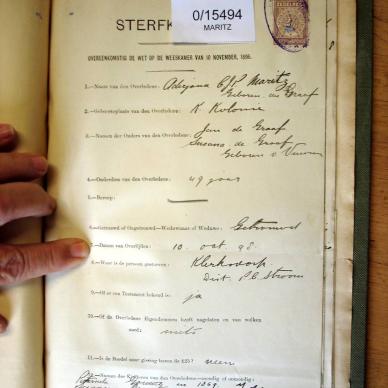 STERFK
0/15494
MARITZ
ZEGEL
OVEREENKOMSTIG DE WET OP DE WEESKAMER VAN 10 NOVEMBER, 1896.
1.—Naam van den Overledene: Adriana Maritz
Geboren de Graaf
2.—Geboorteplaats van den Overledene: K. Kolonie
3.—Namen der Ouders van den Overledene: Jan de Graaf
Susanna de Graaf
Geboren v Vuuren
4.—Ouderdom van den Overledene: 49 jaar
5.—Beroep:
6.—Getrouwd of Ongetrouwd—Weduwnaar of Weduwe: Getrouwd
7.—Datum van Overlijden: 10 Oct. 98
8.—Waar is de persoon gestorven: Klerksdorp
Dist. P.C. Stroom
9.—Of er een Testament bekend is: ja
10.—Of de Overledene Eigendommen heeft nagelaten en van welken
aard: niets
11.—Is de Boedel naar gissing boven de £25? neen
12.—Namen der Kinderen van den Overledene—mondig of onmondig:
in 1869